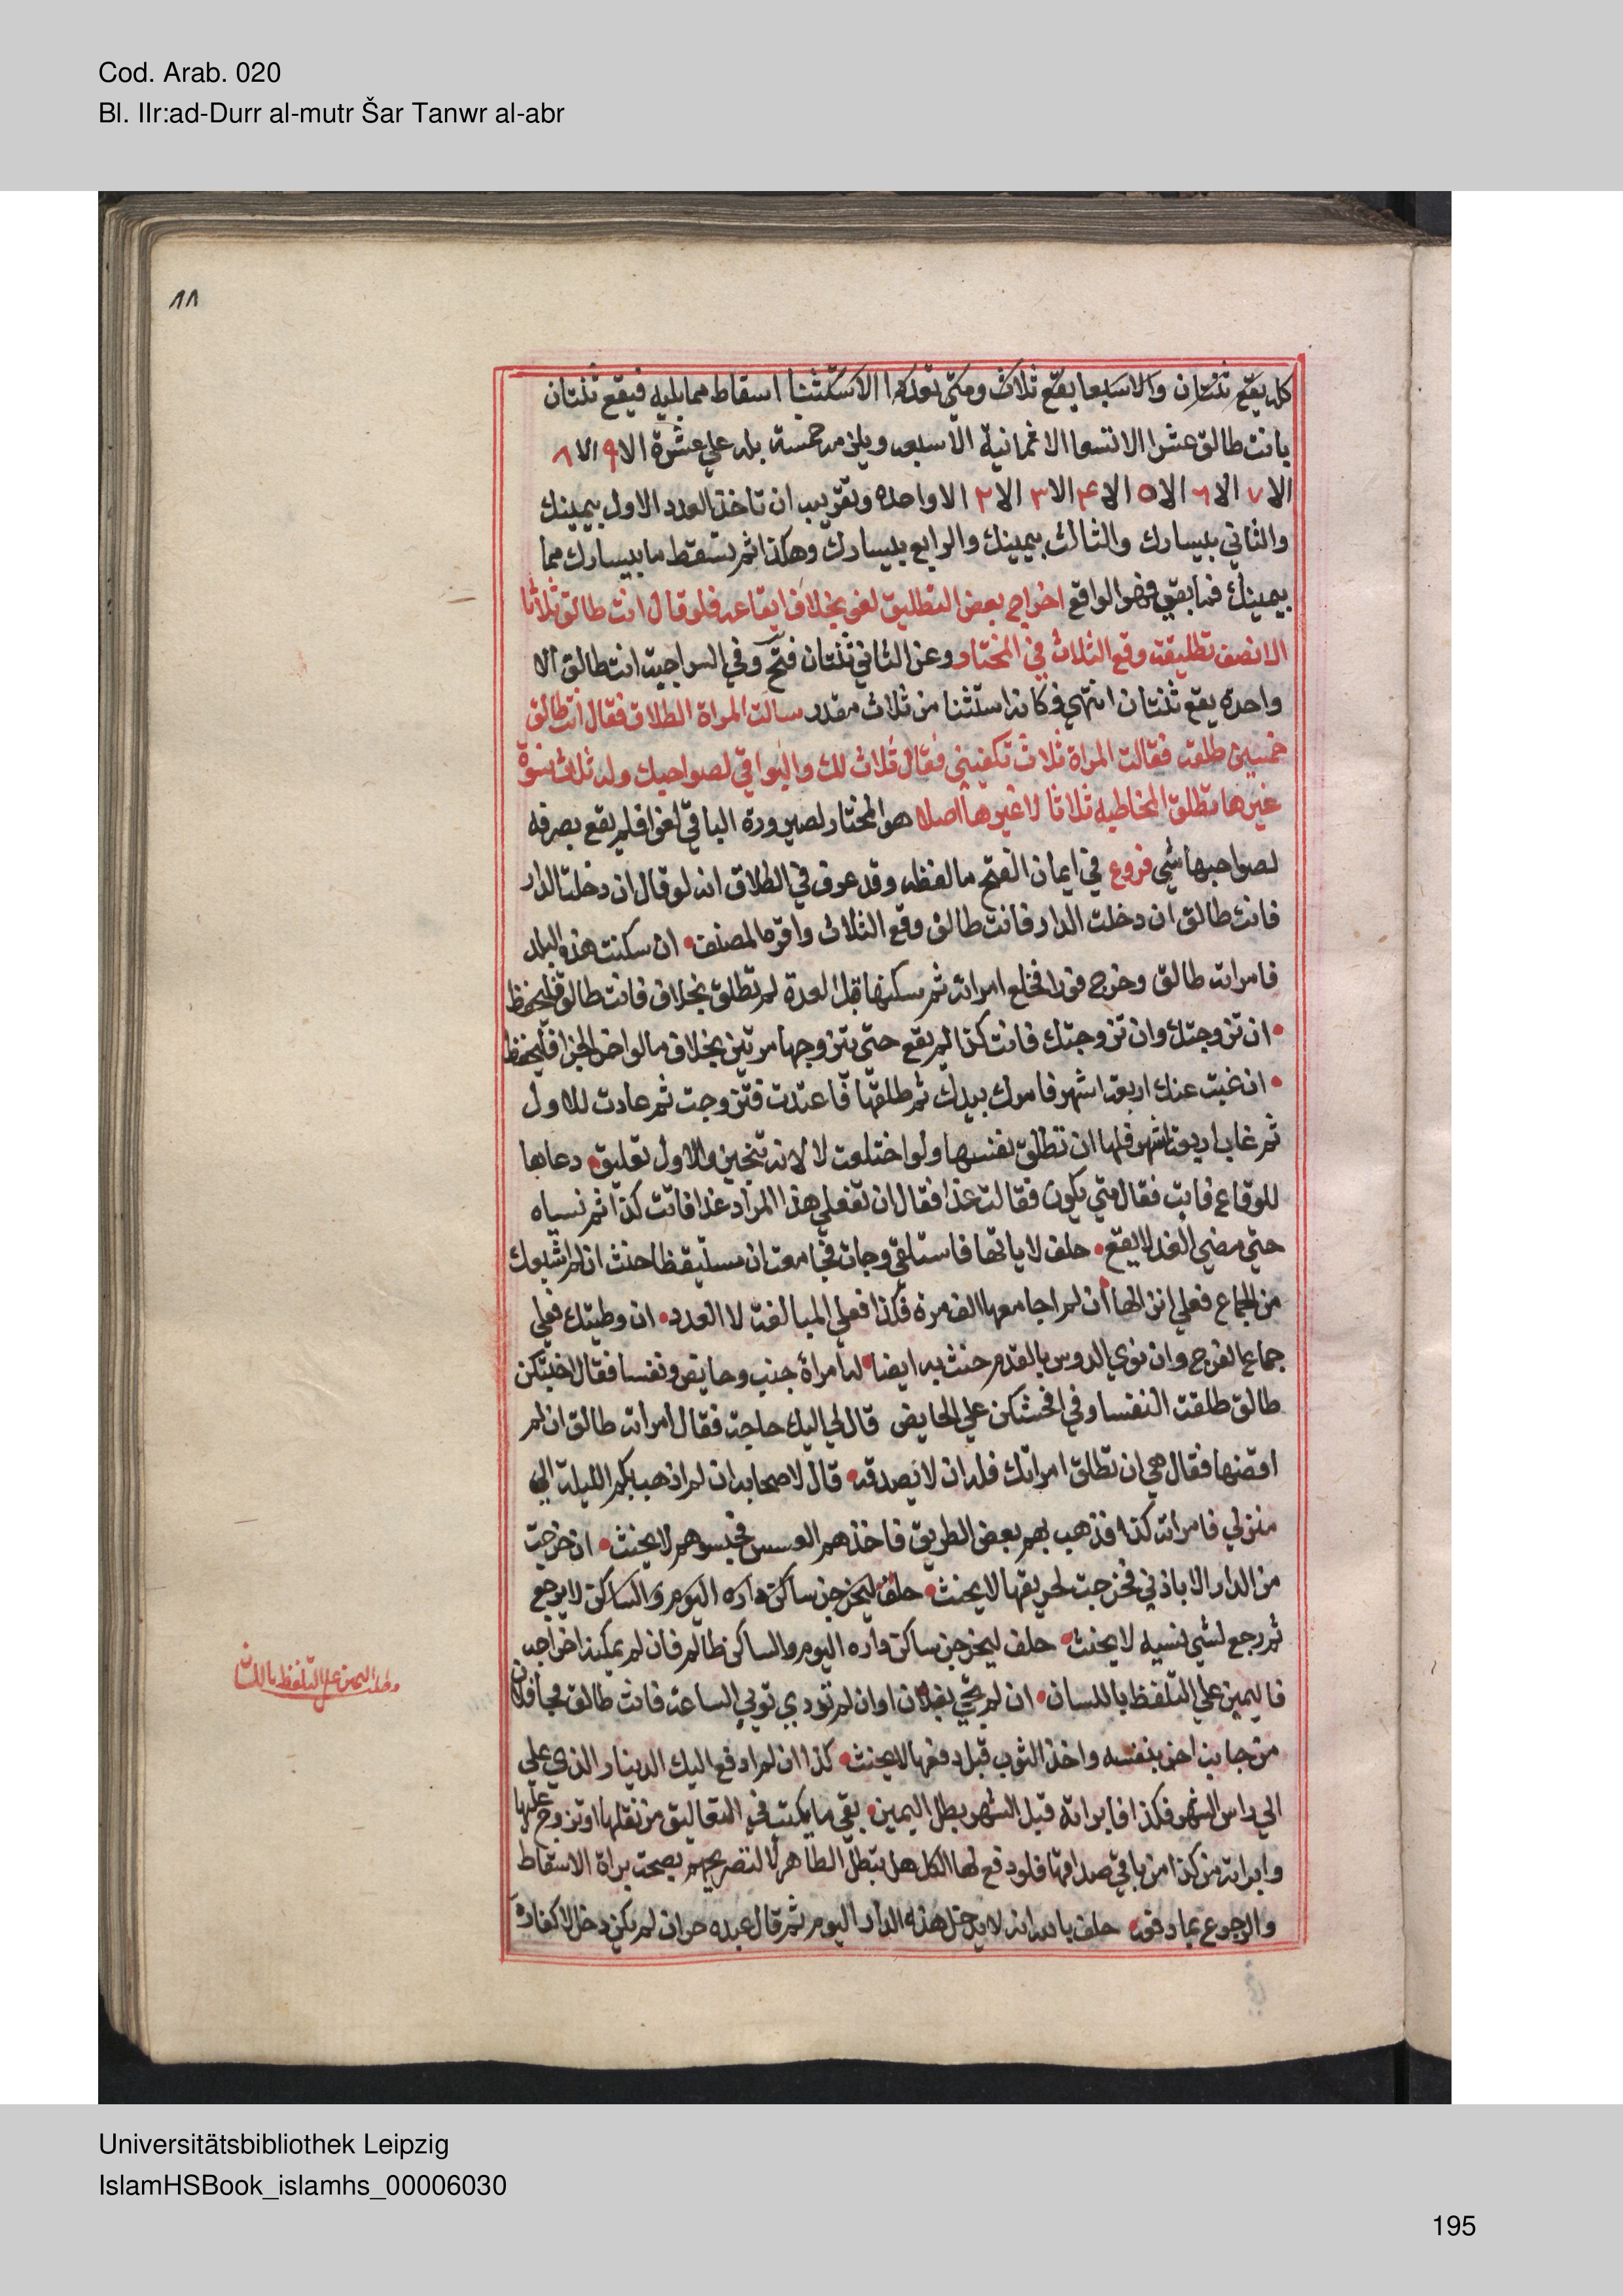 Cod. Arab. 020
Bl. IIr:ad-Durr al-mutr Šar Tanwr al-abr
١١
كل يقع ثنتان والاسبعا يقع ثلاث ومتى تعدد الاستثنا اسقاط مما يليه فيقع ثنتان
بانت طالق عشرا الا تسعا الا ثمانية الا سبعه ويلزمه خمسة بله علي عشرة الا ٩ الا ٨
الا ٧ الا ٦ الا ٥ الا ۴ الا ٣ الا ٢ الا واحده وتقريبه ان تاخذ العدد الاول بيمينك
والثاني بيسارك والثالث بيمينك والرابع بيسارك وهكذا ثم تسقط ما بيسارك مما
بيمينك فما بقي فهو الواقع اخراج بعض التطليق لغو بخلاف ايقاعه فلو قال انت طالق ثلاثا
الا نصف تطليقة وقع الثلاث في المختار وعن الثاني ثنتان فتح وفي السراجية انت طالق الا
واحده يقع ثنتان انتهي فكانه استثنا من ثلاث مقدر سالت المراة الطلاق فقال انت طالق
خمسين طلقة فقالت المراة ثلاث تكفيني فقال ثلاث لك والبواقي لصواحبك وله ثلاث نسوة
غيرها تطلق المخاطبه ثلاثا لا غيرها اصلا هو المختار لصيرورة الباقي لغوا فلم يقع بصرفه
لصواحبها شي فروع في ايمان الفتح ما لفظه وقد عرف في الطلاق انه لو قال ان دخلت الدار
فانت طالق ان دخلت الدار فانت طالق وقع الثلاث واقره المصنف ان سكنت هذه البلد
فامراته طالق وخرج فورا فخلع امراته ثم سكنها قبل العدة لم تطلق بخلاف فانت طالق فليحفظ
ان تزوجتك وان تزوجتك فانت كذا لم يقع حتي يتزوجها مرتين بخلاف ما لو اخر الجزا فليحفظ
ان غبت عنك اربعة اشهر فامرك بيدك ثم طلقها فاعتدت فتزوجت ثم عادت للاول
ثم غاب اربعة اشهر فلها ان تطلق نفسها ولو اختلعت لا لانه تنجيز والاول تعليق دعاها
للوقاع فابت فقال متي يكون فقالت غدا فقال ان تفعلي هذا المراد غدا فانت كذا ثم نسياه
حتي مضي الغد لا يقع حلف لا ياتها فاستلقي وجات فجامعت ان مستيقظا حنث ان لم اشبعك
من الجماع فعلي انزالها ان لم اجامعها الف مرة فكذا فعلي المبالغة لا العدد ان وطيتك فعلي
جماع الفرج وان نوي الدوس بالقدم حنث به ايضا له امراة جنب وحايض ونفسا فقال اخبثكن
طالق طلقت النفسا وفي افحشكن علي الحايض قال لي اليك حاجة فقال امراته طالق ان لم
اقضها فقال هي ان تطلق امراتك فله ان لا يصدقه قال لاصحابه ان لم اذهب بكم الليلة الي
منزلي فامراته كذا فذهب بهم بعض الطريق فاخذهم العسس فحبسوهم لا يحنث ان خرجت
من الدار الا باذني فخرجت لحريقها لا يحنث حلف ليخرجن ساكن داره اليوم والساكن لا يرجع
ثم رجع لشي نسيه لا يحنث حلف ليخرجن ساكن داره اليوم والساكن ظالم فان لم يمكنه اخراجه
فاليمين علي التلفظ باللسان ان لم تجي بفلان او ان لم تودي ثوبي الساعة فانت طالق فجا فلان
من جانب اخر بنفسه واخذ الثوب قبل دفعها لا يحنث كذا ان لم ادفع اليك الدينار الذي علي
الي راس الشهر فكذا فابراته قبل الشهر بطل اليمين بقي ما يكتب في التعاليق من نقلها او تزوج عليها
وابراته من كذا من باقي صداقها فلو دفع لها الكل هل تبطل الظاهر لا لتصريحهم بصحة براة الاسقاط
والرجوع بما دفعه حلف بالله انه لا يدخل هذه الدار اليوم ثم قال عبده حر ان لم يكن دخل لا كفارة
مطلب اليمين علي التلفظ باللسان
Universitätsbibliothek Leipzig
IslamHSBook_islamhs_00006030
195